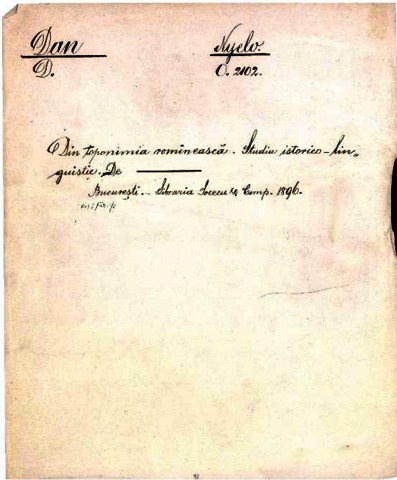 Dan Nyelv.
D. O. 2102.
Din toponimia romînească. Studiu istorico-lin„
guistic. De ———
București. – Libraria Socecu & Comp. 1896.